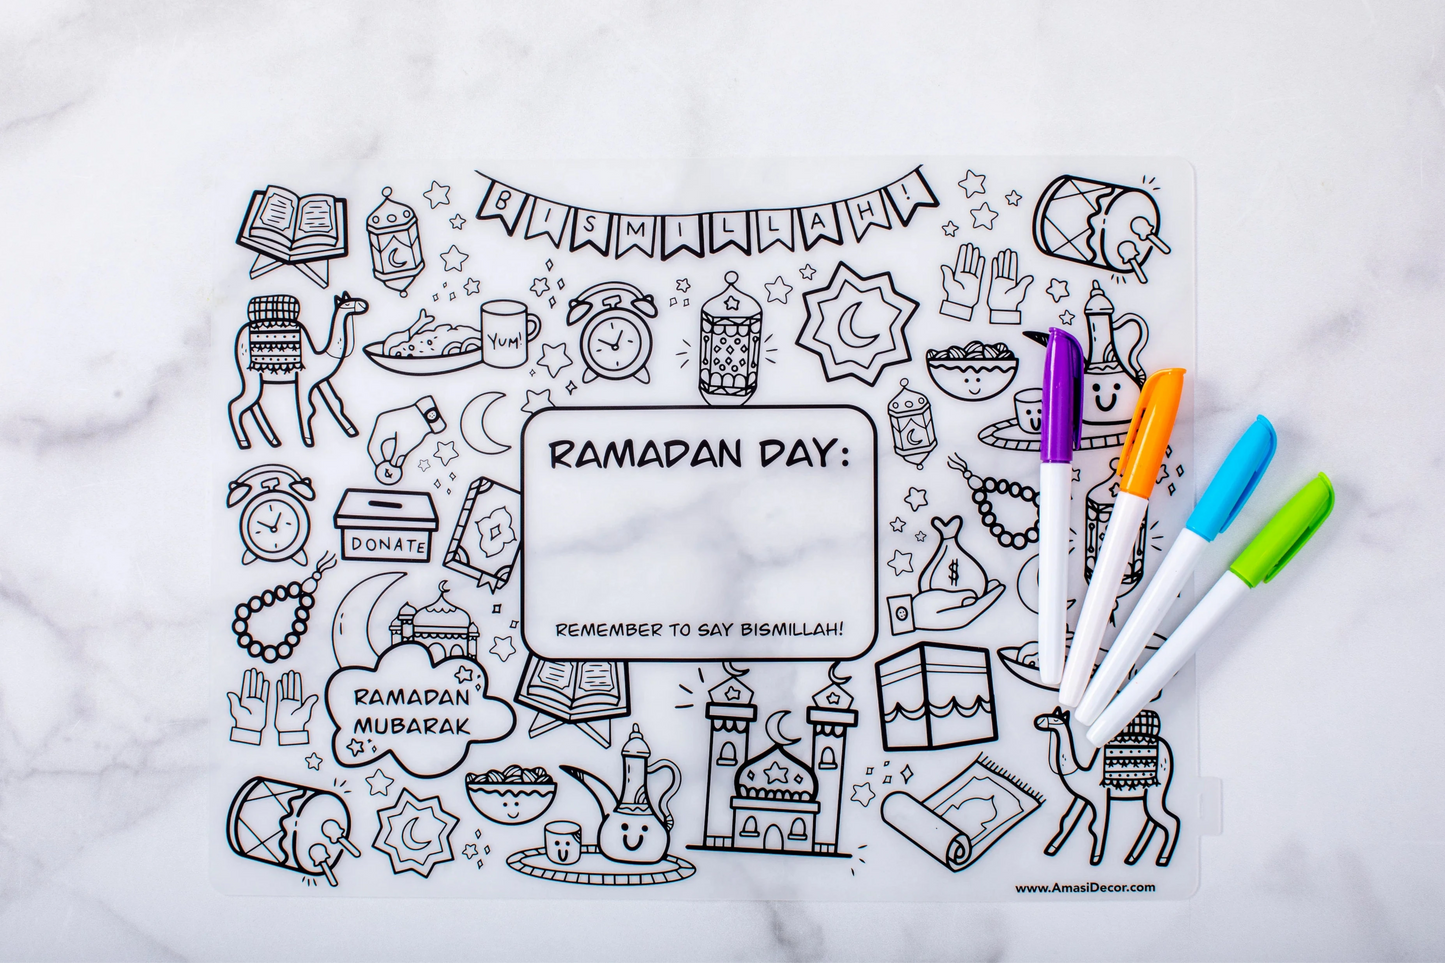 BISMILLAH!
YUM!
RAMADAN DAY:
&
DONATE
$
REMEMBER TO SAY BISMILLAH!
RAMADAN
MUBARAK
www.AmasiDecor.com